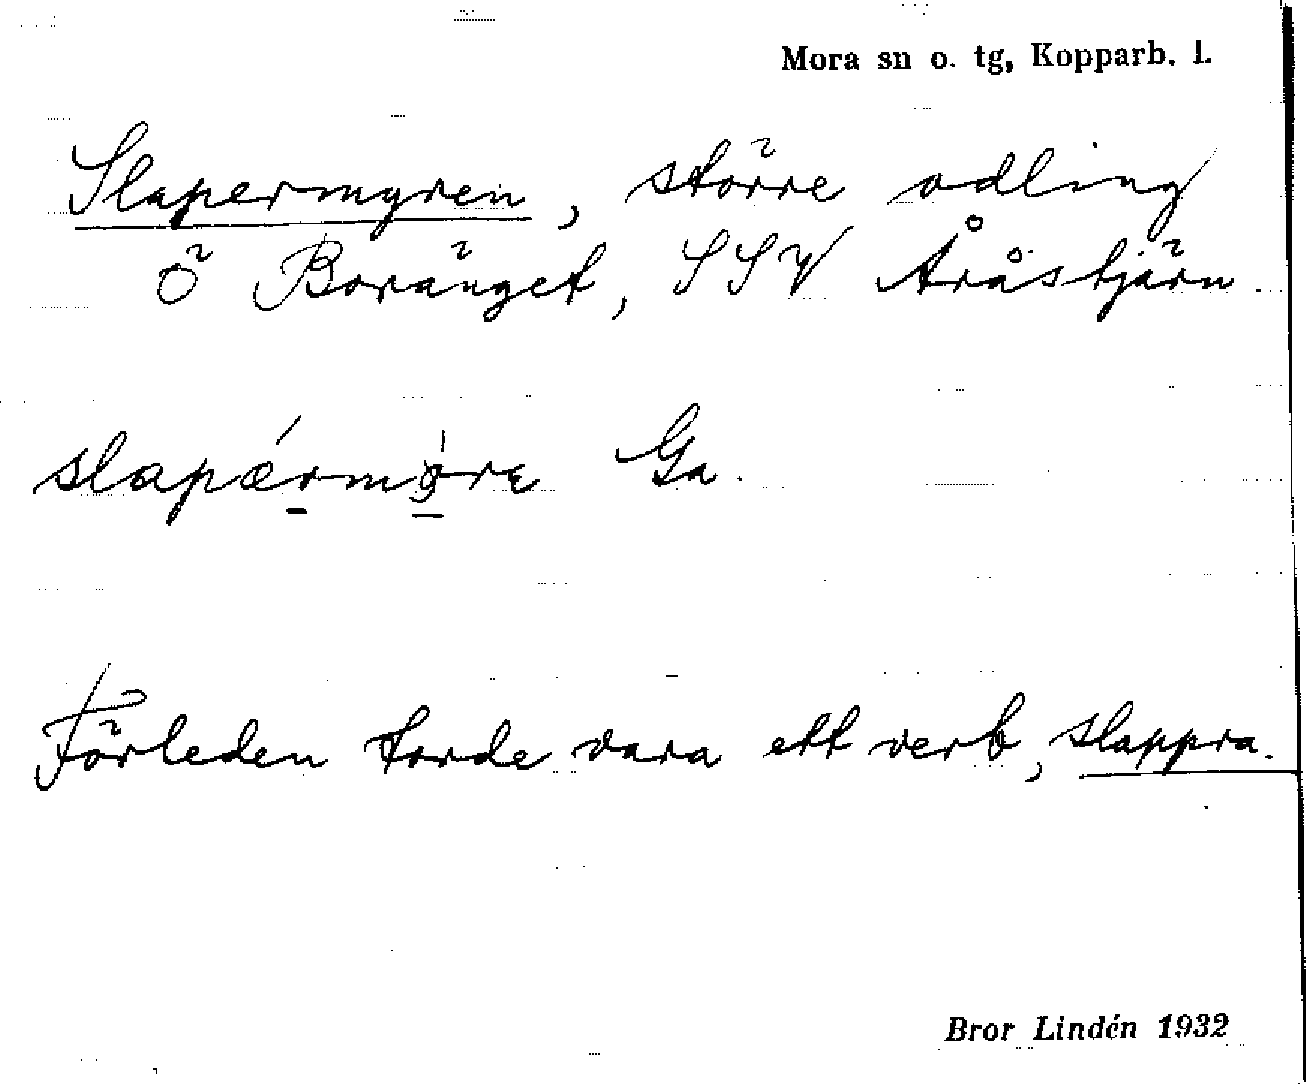 Mora sn o. tg, Kopparb. l.
Slapermyren, större odling
Ö Boränget, SSV Åråstjärn.
Ga.
Förleden torde vara ett verb, slappra.
Bror Lindén 1932